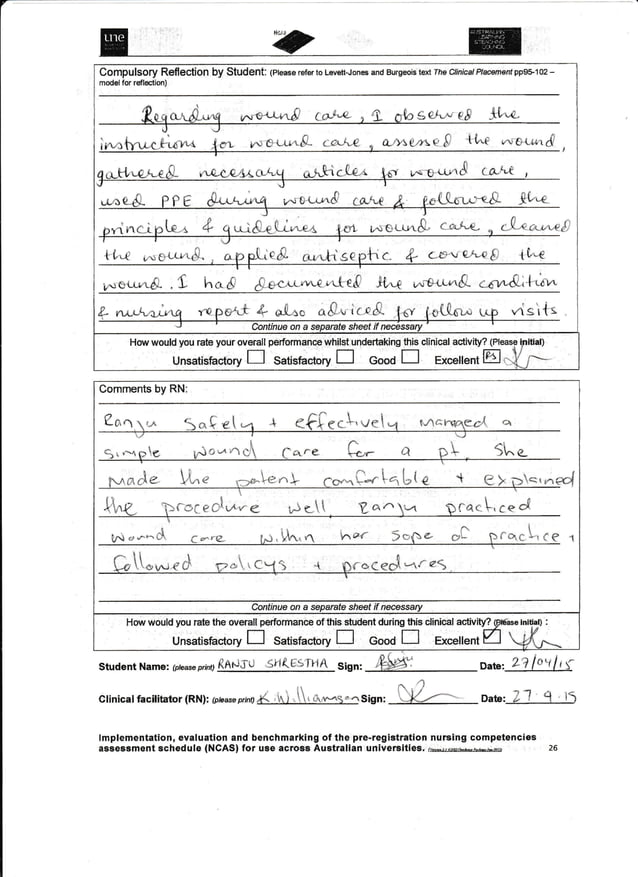 une
NCAS
AUSTRALIAN
LEARNING
& TEACHING
COUNCIL
Compulsory Reflection by Student: (Please refer to Levett-Jones and Burgeois text The Clinical Placement pp95-102 –
model for reflection)
Regarding wound care, I observed the
instructions for wound care, assessed the wound,
gathered necessary articles for wound care,
used PPE during wound care & followed the
principles & guidelines for wound care, cleaned
the wound, applied antiseptic & covered the
wound. I had documented the wound condition
& nursing report & also adviced for follow up visits.
Continue on a separate sheet if necessary
How would you rate your overall performance whilst undertaking this clinical activity? (Please initial)
Unsatisfactory Satisfactory Good Excellent RS
Comments by RN:
Ranju Safely + effectively managed a
simple wound care for a pt. She
made the patent comfortable + explained
the procedure well. Ranju practiced
wound care within her sope of practice +
followed policys + procedures.
Continue on a separate sheet if necessary
How would you rate the overall performance of this student during this clinical activity? (Please initial) :
Unsatisfactory Satisfactory Good Excellent
Student Name: (please print) RANJU SHRESTHA Sign: Date: 27/04/15
Clinical facilitator (RN): (please print) K. Williamson Sign: Date: 27.4.15
Implementation, evaluation and benchmarking of the pre-registration nursing competencies
assessment schedule (NCAS) for use across Australian universities. 26